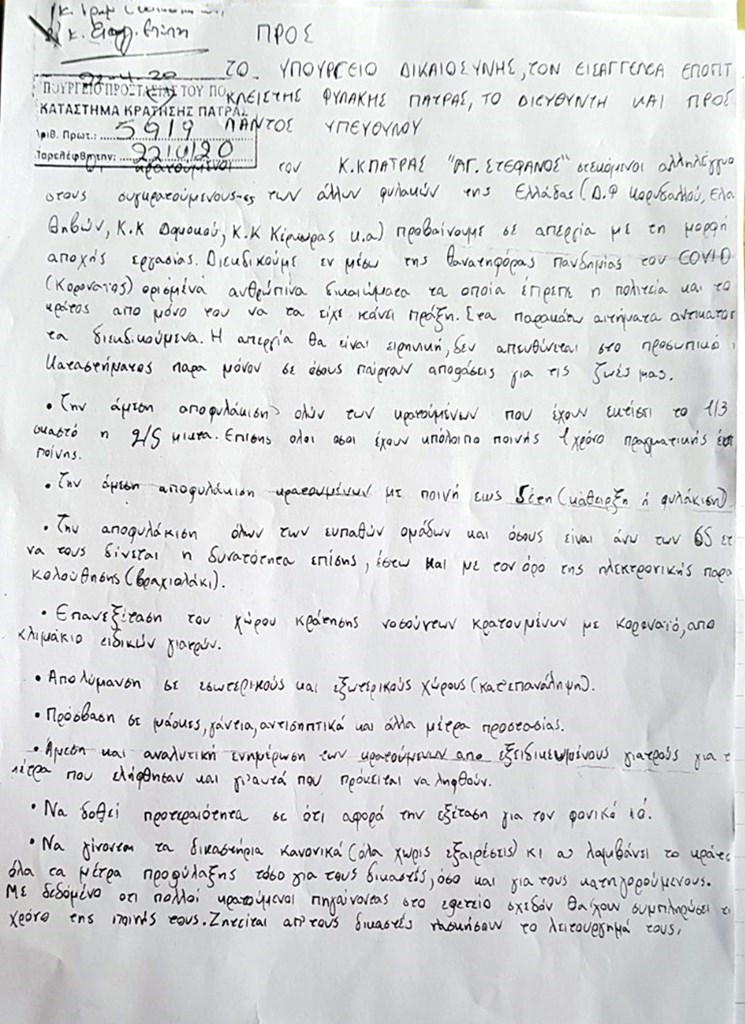 κ.
κ. Εισαγγ.
ΠΡΟΣ
ΤΟ ΥΠΟΥΡΓΕΙΟ ΔΙΚΑΙΟΣΥΝΗΣ, ΤΟΝ ΕΙΣΑΓΓΕΛΕΑ ΕΠΟΠΤ
22-4-20
ΠΟΥΡΓΕΙΟ ΠΡΟΣΤΑΣΙΑΣ ΤΟΥ ΠΟ
ΚΛΕΙΣΤΗΣ ΦΥΛΑΚΗΣ ΠΑΤΡΑΣ, ΤΟ ΔΙΕΥΘΥΝΤΗ ΚΑΙ ΠΡΟΣ
ΚΑΤΑΣΤΗΜΑ ΚΡΑΤΗΣΗΣ ΠΑΤΡΑΣ
Αριθ. Πρωτ.: 5919
ΠΑΝΤΟΣ ΥΠΕΥΘΥΝΟΥ
Παρελήφθη την: 22/4/20
κρατουμενοι του Κ.Κ ΠΑΤΡΑΣ "ΑΓ. ΣΤΕΦΑΝΟΣ" στεκόμενοι αλληλέγγυο
στους συγκρατούμενους-ες των άλλων φυλακών της Ελλάδας (Δ.Φ Κορυδαλλού, Ελα
Θηβών, Κ.Κ Δομοκού, Κ.Κ Κέρκυρας κ.α) προβαίνουμε σε απεργία με τη μορφή
αποχής εργασίας. Διεκδικούμε εν μέσω της θανατηφόρας πανδημίας του COVID
(Κορονοϊός) ορισμένα ανθρώπινα δικαιώματα τα οποία έπρεπε η πολιτεία και το
κράτος απο μόνο του να τα είχε κάνει πράξη. Στα παρακάτω αιτήματα αντικατοπ
τα διεκδικούμενα. Η απεργία θα είναι ειρηνική, δεν απευθύνεται στο προσωπικό
Καταστήματος παρα μόνον σε όσους παίρνουν αποφάσεις για τις ζωές μας.
• Την άμεση αποφυλάκιση ολών των κρατουμένων που έχουν εκτίσει το 1/3
εικαστό η 2/5 μικτα. Επισης ολοι οσοι έχουν υπόλοιπο ποινής 1 χρόνο πραγματικής έκτ
ποίνης.
• Την άμεση αποφυλάκιση κρατουμένων με ποινή εως 5έτη (κάθειρξη ή φυλάκιση)
• Την αποφυλάκιση όλων των ευπαθών ομάδων και όσους είναι άνω των 65 ετ
να τους δίνεται η δυνατότητα επίσης, έστω και με τον όρο της ηλεκτρονικής παρα
κολούθησης (βραχιολάκι).
• Επανεξέταση του χώρου κράτησης νοσούντων κρατουμένων με κορονοϊό, απο
κλιμάκιο ειδικών γιατρών.
• Απολύμανση σε εσωτερικούς και εξωτερικούς χώρους (κατ'επανάληψη).
• Πρόσβαση σε μάσκες, γάντια, αντισηπτικά και άλλα μέτρα προστασίας.
• Άμεση και αναλυτική ενημέρωση των κρατουμένων απο εξειδικευμένους γιατρούς για τ
μέτρα που ελήφθησαν και γι'αυτά που πρόκειται να ληφθούν.
• Να δοθεί προτεραιότητα σε ότι αφορά την εξέταση για τον φονικό ιό.
• Να γίνονται τα δικαστήρια κανονικά (όλα χωρίς εξαιρέσεις) κι ας λαμβάνει το κράτος
όλα τα μέτρα προφύλαξης τόσο για τους δικαστές, όσο και για τους κατηγορούμενους.
Με δεδομένο οτι πολλοί κρατούμενοι πηγαίνοντας στο εφετείο σχεδόν θα'χουν συμπληρώσει τ
χρόνο της ποινής τους. Ζητείται απ'τους δικαστές να ασκήσουν το λειτουργημά τους.